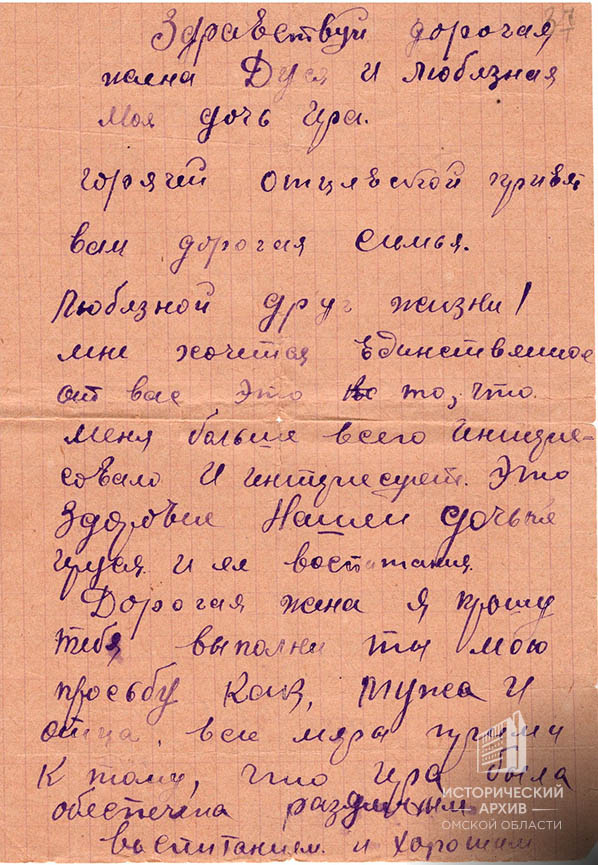 37
Здравствуй дорогая
жена Дуся и любязная
Моя дочь Ира.
горячий отцавской привят
вам дорогая симья.
Любязной друг жизни!
мне хочится Единствянное
от вас это то, что
меня больше всего интире-
совало и интиресует. Это
Здоровие Нашей дочьки
Ируся и ея воспитания.
Дорогая жена я прошу
тебя выполни ты мою
просьбу Как, мужа и
отца, все мяра прими
К тому, что Ира была
обеспечена
воспитанием и хорошим
ИСТОРИЧЕСКИЙ
АРХИВ
ОМСКОЙ ОБЛАСТИ